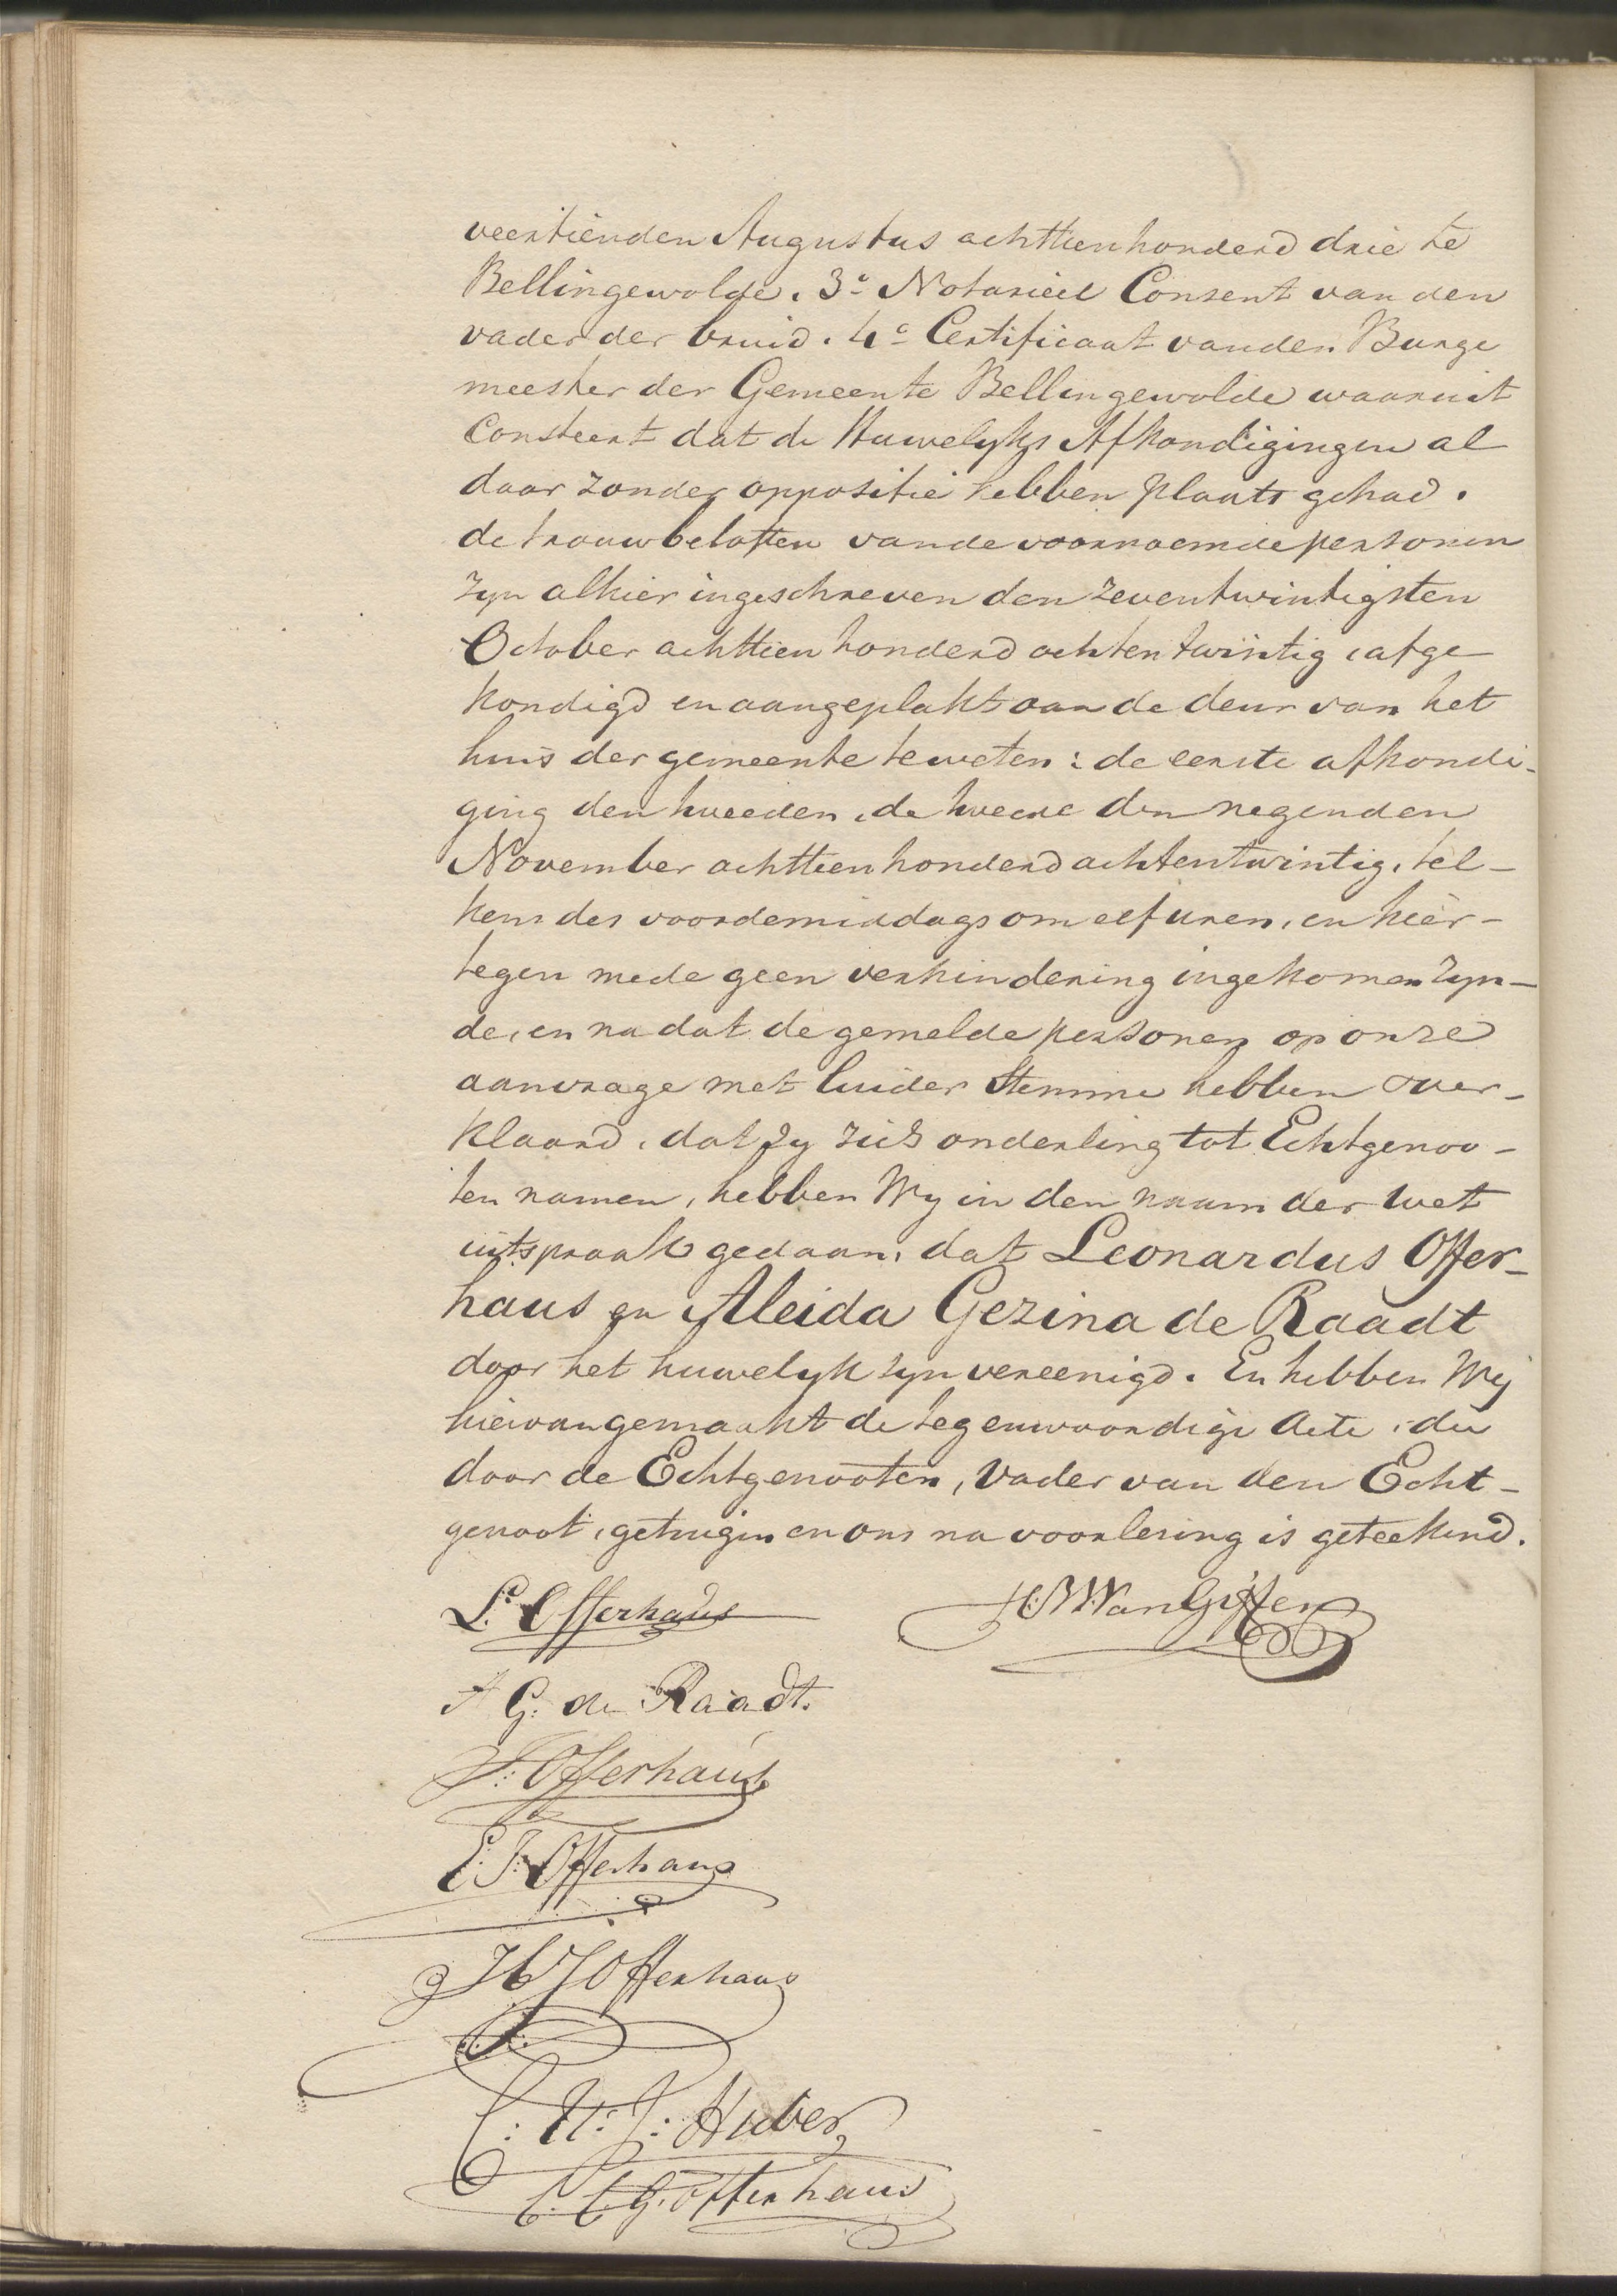 veertienden Augustus achttienhonderd drie te
Bellingewolde. 3º Notarieel Consent van den
vader der bruid. 4º Certificaat van den Burge
meester der Gemeente Bellingewolde waaruit
Consteert dat de Huwelyks Afkondigingen al
daar zonder oppositie hebben plaats gehad.
de trouwbeloften van de voornoemde personen
zyn alhier ingeschreven den zeventwintigsten
October achttien honderd achtentwintig, afge
kondigd en aangeplakt aan de deur van het
huis der gemeente te weten: de eerste afkondi-
ging den tweeden, de tweede den negenden
November achttienhonderd achtentwintig, tel-
kens des voordemiddags om elf uren, en hier-
tegen mede geen verhindering ingekomen zyn-
de, en na dat de gemelde personen op onze
aanvrage met luider Stemme hebben ver-
klaard, dat zy zich onderling tot Echtgenoo-
ten namen, hebben Wy in den naam der wet
uitspraak gedaan, dat Leonardus Offer-
haus en Aleida Gezina de Raadt
door het huwelyk zyn vereenigd. En hebben Wy
hiervan gemaakt de tegenwoordige Acte, die
door de Echtgenooten, Vader van den Echt-
genoot, getuigen en ons na voorlezing is geteekend.
L. Offerhaus
H:B:Van Giffen
A G. de Raadt.
Offerhaus
E. J. Offerhaus
H J Offerhaus
U: J: Huber
C. C. G. Offerhaus